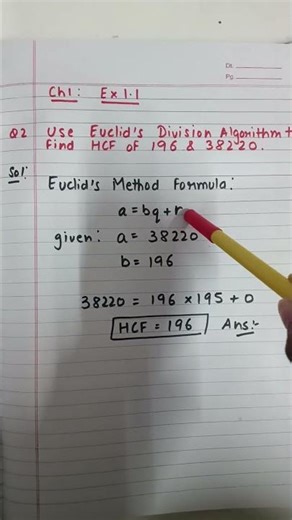 Dt.
Pg.
Ch1: Ex 1.1
Q2 Use Euclid's Division Algorithm t
find HCF of 196 & 38220.
Sol:
Euclid's Method formula:
a = bq + r
given: a = 38220
b = 196
38220 = 196 × 195 + 0
HCF = 196 Ans:-